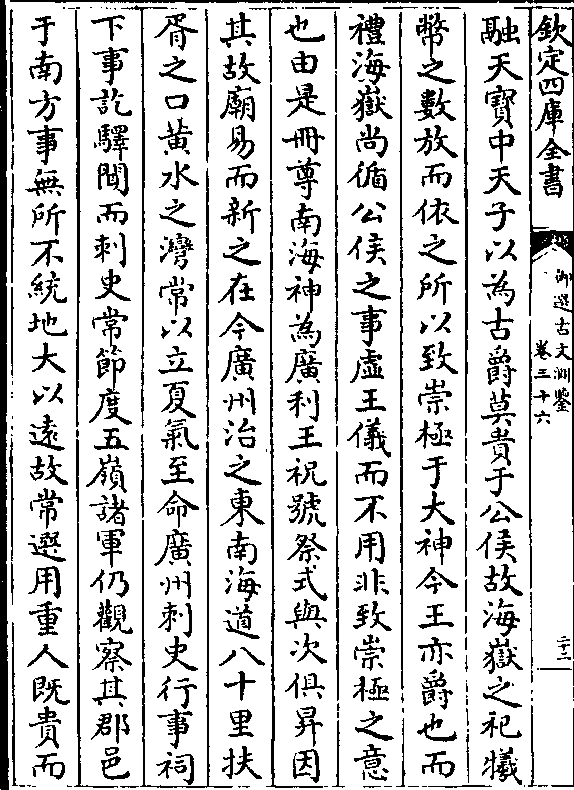 欽定四庫全書
御選古文淵鑒
卷三十六
二十二
融天寶中天子以為古爵莫貴于公侯故海嶽之祀犧
幣之數放而依之所以致崇極于大神今王亦爵也而
禮海嶽尚循公侯之事虛王儀而不用非致崇極之意
也由是冊尊南海神為廣利王祝號祭式與次俱昇因
其故廟易而新之在今廣州治之東南海道八十里扶
胥之口黃水之灣常以立夏氣至命廣州刺史行事祠
下事訖驛聞而刺史常節度五嶺諸軍仍觀察其郡邑
于南方事無所不統地大以遠故常選用重人既貴而